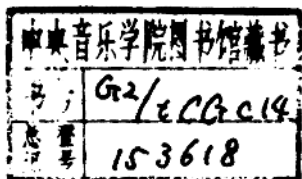 中央音乐学院图书馆藏书
书号 G2/tCGc14
总登号 153618